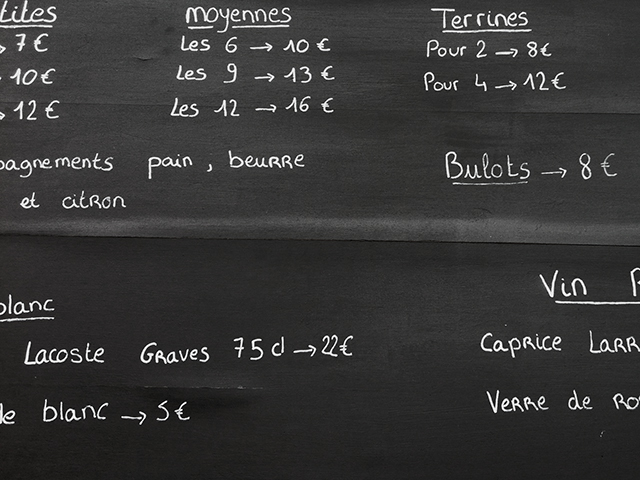 tites
7 €
→ 10 €
→ 12 €
Moyennes
Les 6 → 10 €
Les 9 → 13 €
Les 12 → 16 €
Terrines
Pour 2 → 8€
Pour 4 → 12€
pagnements pain, beurre
et citron
Bulots → 8 €
blanc
Lacoste Graves 75 cl → 22€
de blanc → 5€
Vin R
Caprice Larr
Verre de ro